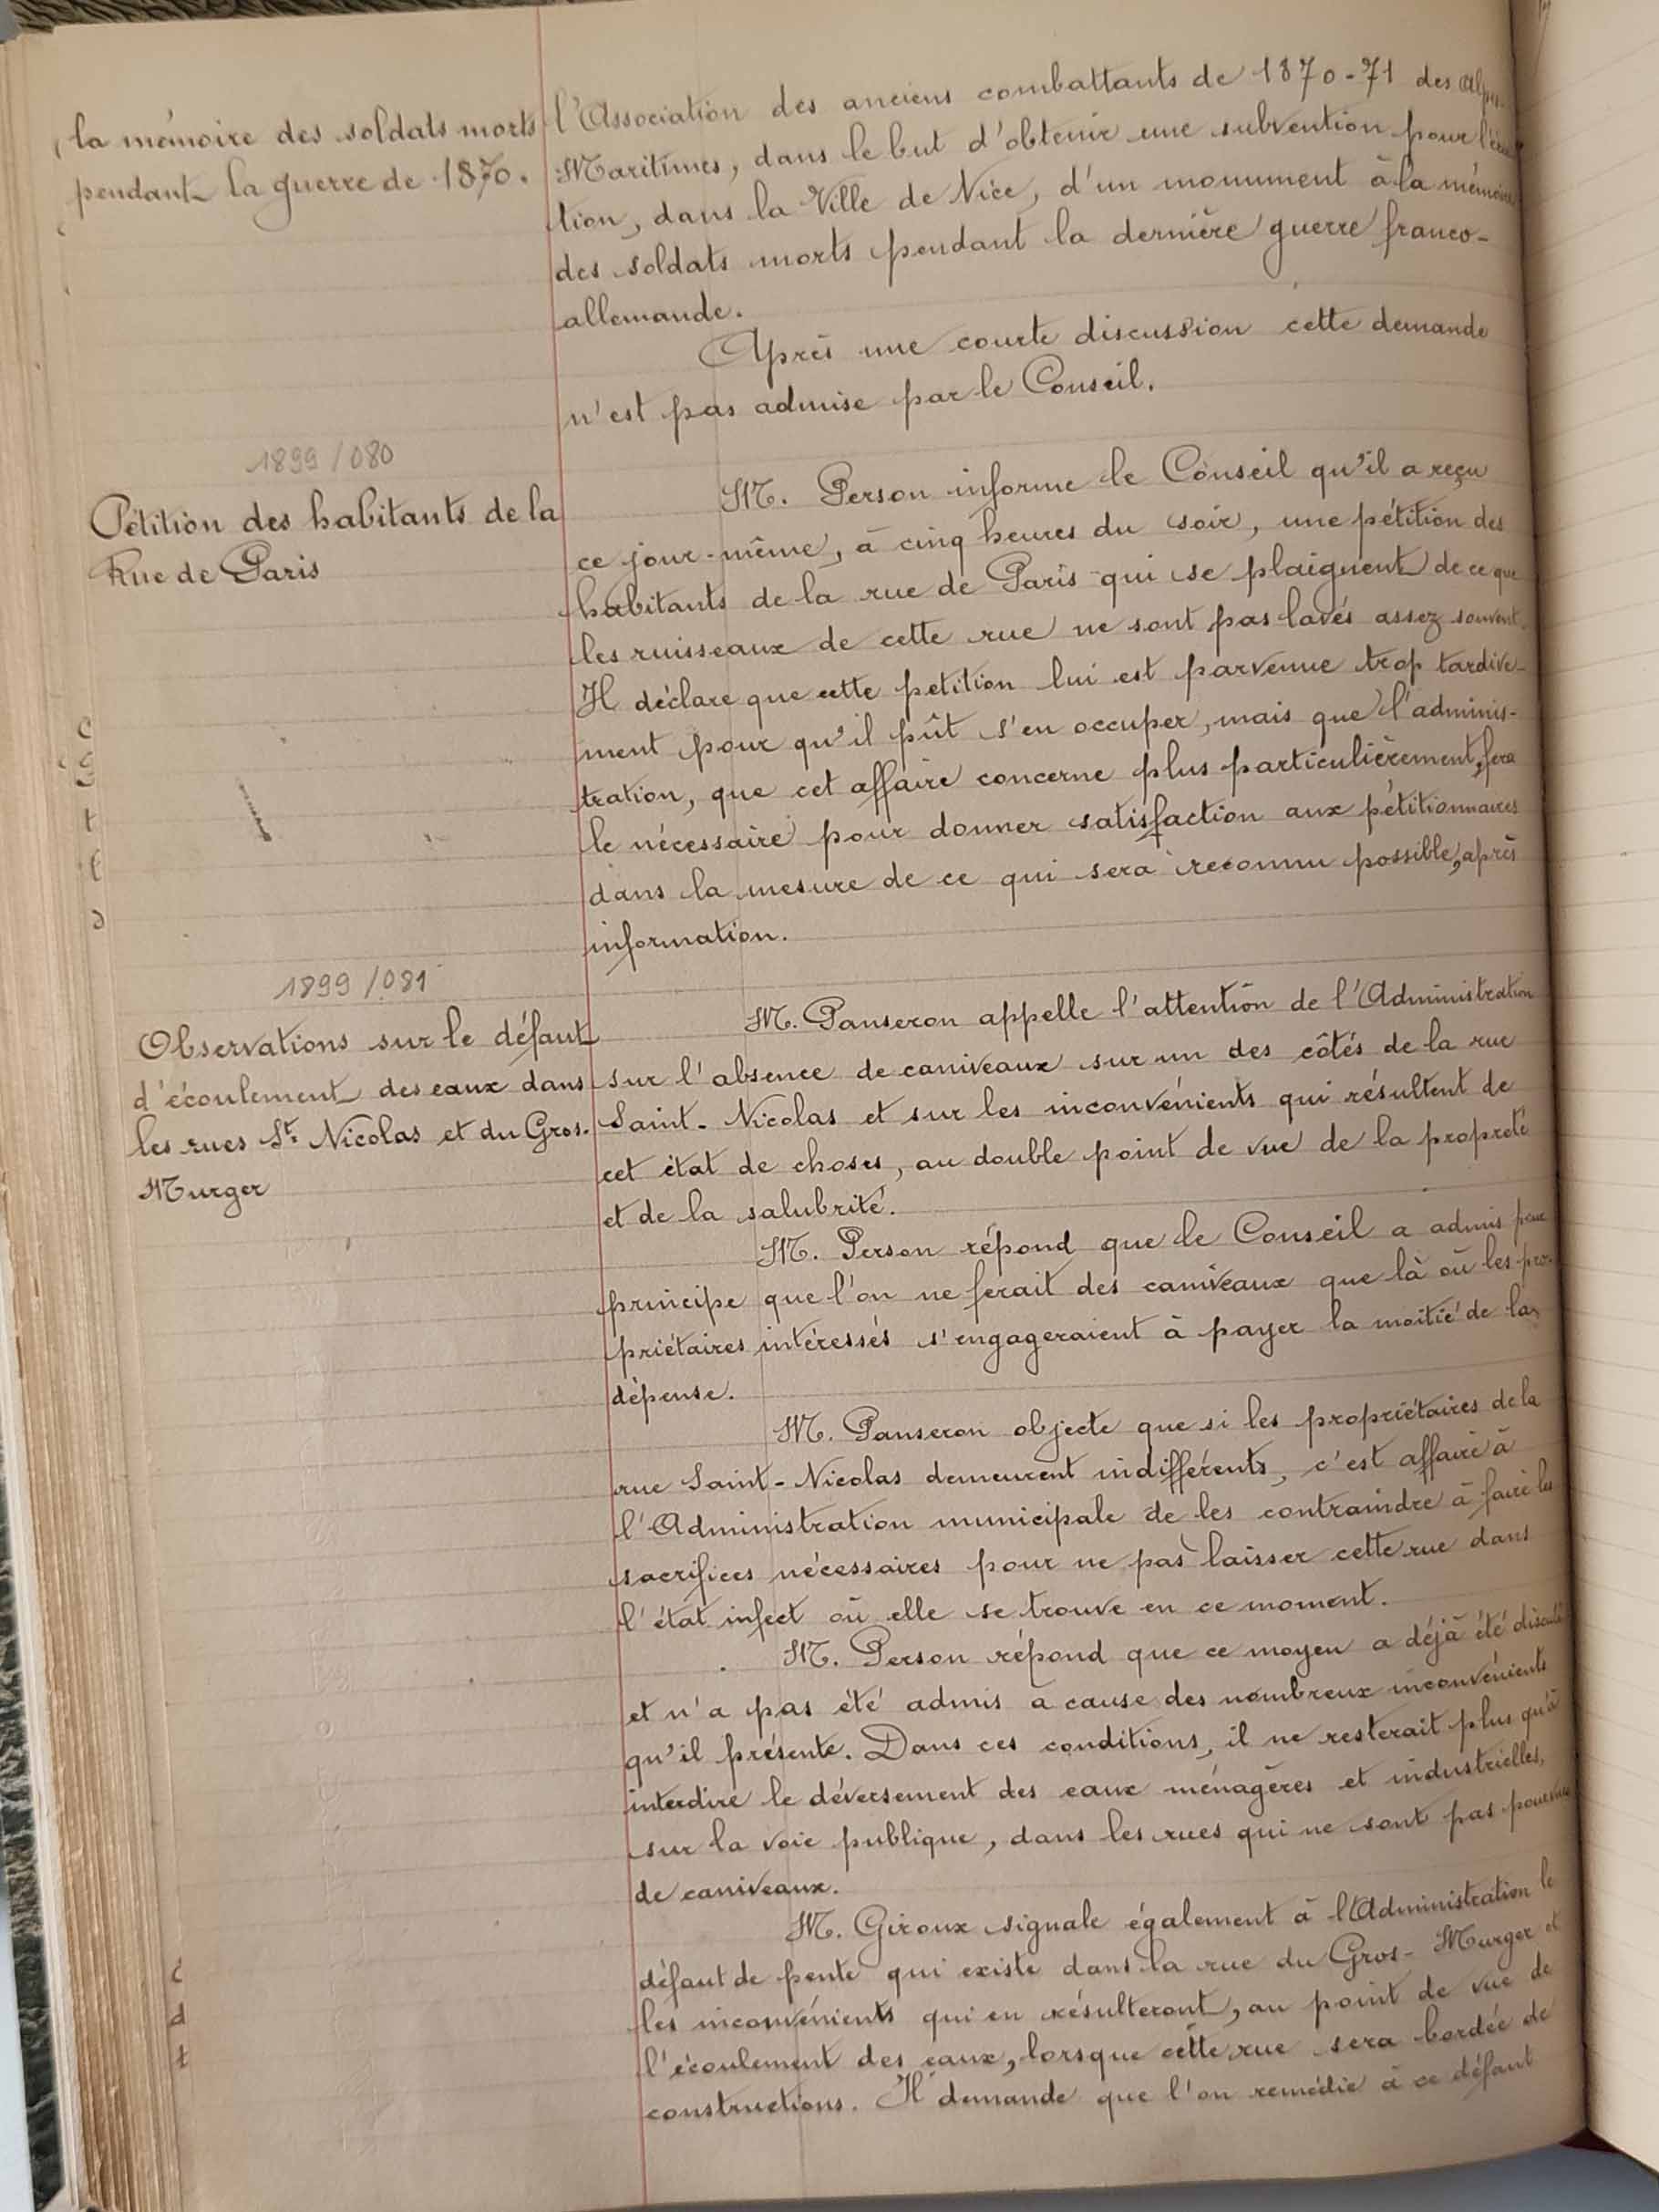 la mémoire des soldats morts
pendant la guerre de 1870.
l'Association des anciens combattants de 1870-71 des Alpes-
Maritimes, dans le but d'obtenir une subvention pour l'érec
tion, dans la Ville de Nice, d'un monument à la mémoire
des soldats morts pendant la dernière guerre franco-
allemande.
Après une courte discussion cette demande
n'est pas admise par le Conseil.
1899/080
Pétition des habitants de la
Rue de Paris
M. Person informe le Conseil qu'il a reçu
ce jour-même, à cinq heures du soir, une pétition des
habitants de la rue de Paris qui se plaignent de ce que
les ruisseaux de cette rue ne sont pas lavés assez souvent.
Il déclare que cette petition lui est parvenue trop tardive-
ment pour qu'il pût s'en occuper, mais que l'adminis-
tration, que cet affaire concerne plus particulièrement, fera
le nécessaire pour donner satisfaction aux pétitionnaires
dans la mesure de ce qui sera reconnu possible, après
information.
1899/081
Observations sur le défaut
d'écoulement des eaux dans
les rues St. Nicolas et du Gros-
Murger
M. Panseron appelle l'attention de l'Administration
sur l'absence de caniveaux sur un des côtés de la rue
Saint-Nicolas et sur les inconvénients qui résultent de
cet état de choses, au double point de vue de la propreté
et de la salubrité.
M. Person répond que le Conseil a admis pour
principe que l'on ne ferait des caniveaux que là où les pro-
priétaires intéressés s'engageraient à payer la moitié de la
dépense.
M. Panseron objecte que si les propriétaires de la
rue Saint-Nicolas demeurent indifférents, c'est affaire à
l'Administration municipale de les contraindre à faire les
sacrifices nécessaires pour ne pas laisser cette rue dans
l'état infect où elle se trouve en ce moment.
M. Person répond que ce moyen a déjà été discuté
et n'a pas été admis à cause des nombreux inconvénients
qu'il présente. Dans ces conditions, il ne resterait plus qu'à
interdire le déversement des eaux ménagères et industrielles,
sur la voie publique, dans les rues qui ne sont pas pourvues
de caniveaux.
M. Giroux signale également à l'Administration le
défaut de pente qui existe dans la rue du Gros-Murger et
les inconvénients qui en résulteront, au point de vue de
l'écoulement des eaux, lorsque cette rue sera bordée de
constructions. Il demande que l'on remédie à ce défaut